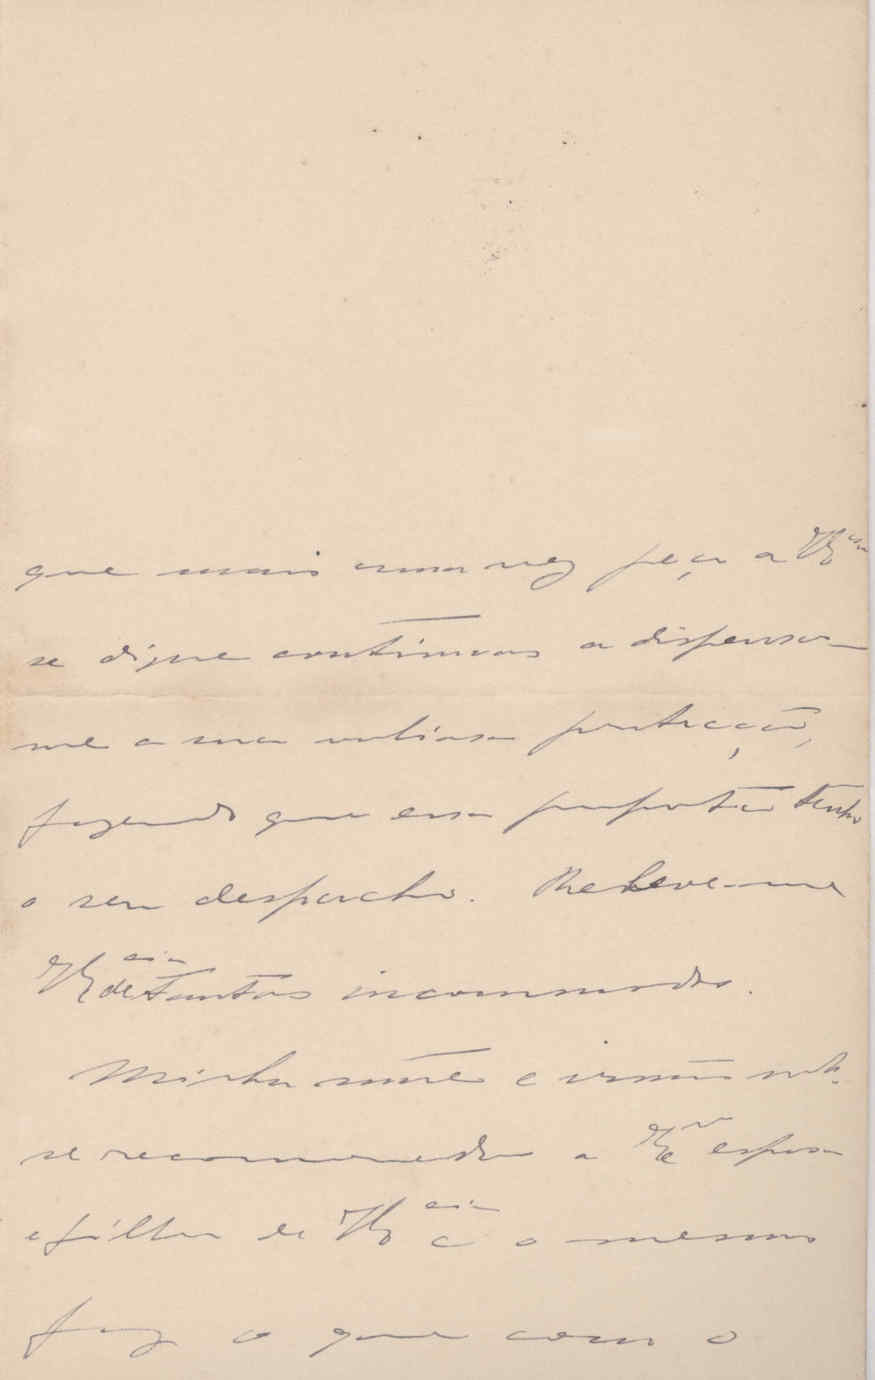 que mais uma vez peço a
se digne continuar a dispensar
me a sua valiosa protecção,
fazendo que essa tenha
o seu despacho. Releve-me
de tantos incommodos.
Minha mãe e irmãs
se recommendam a esposa
e filha de e o mesmo
faz o que com o